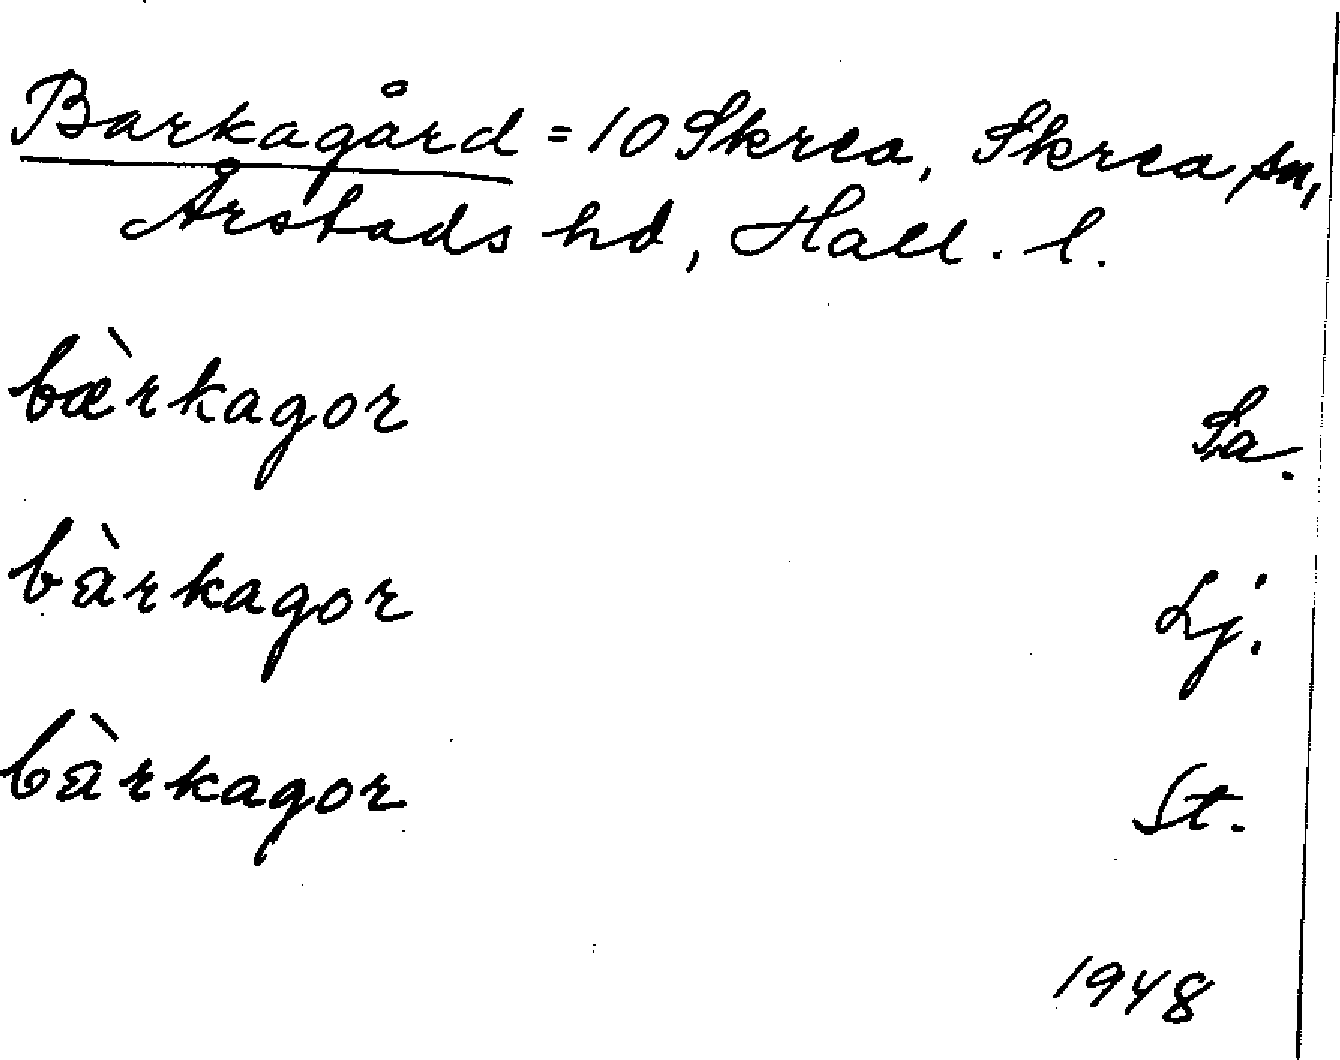 Barkagård = 10 Skrea, Skrea sn,
Årstads hd, Hall. l.
bæ̀rkagor Sa.
bàrkagor Lj.
bàrkagor St.
1948